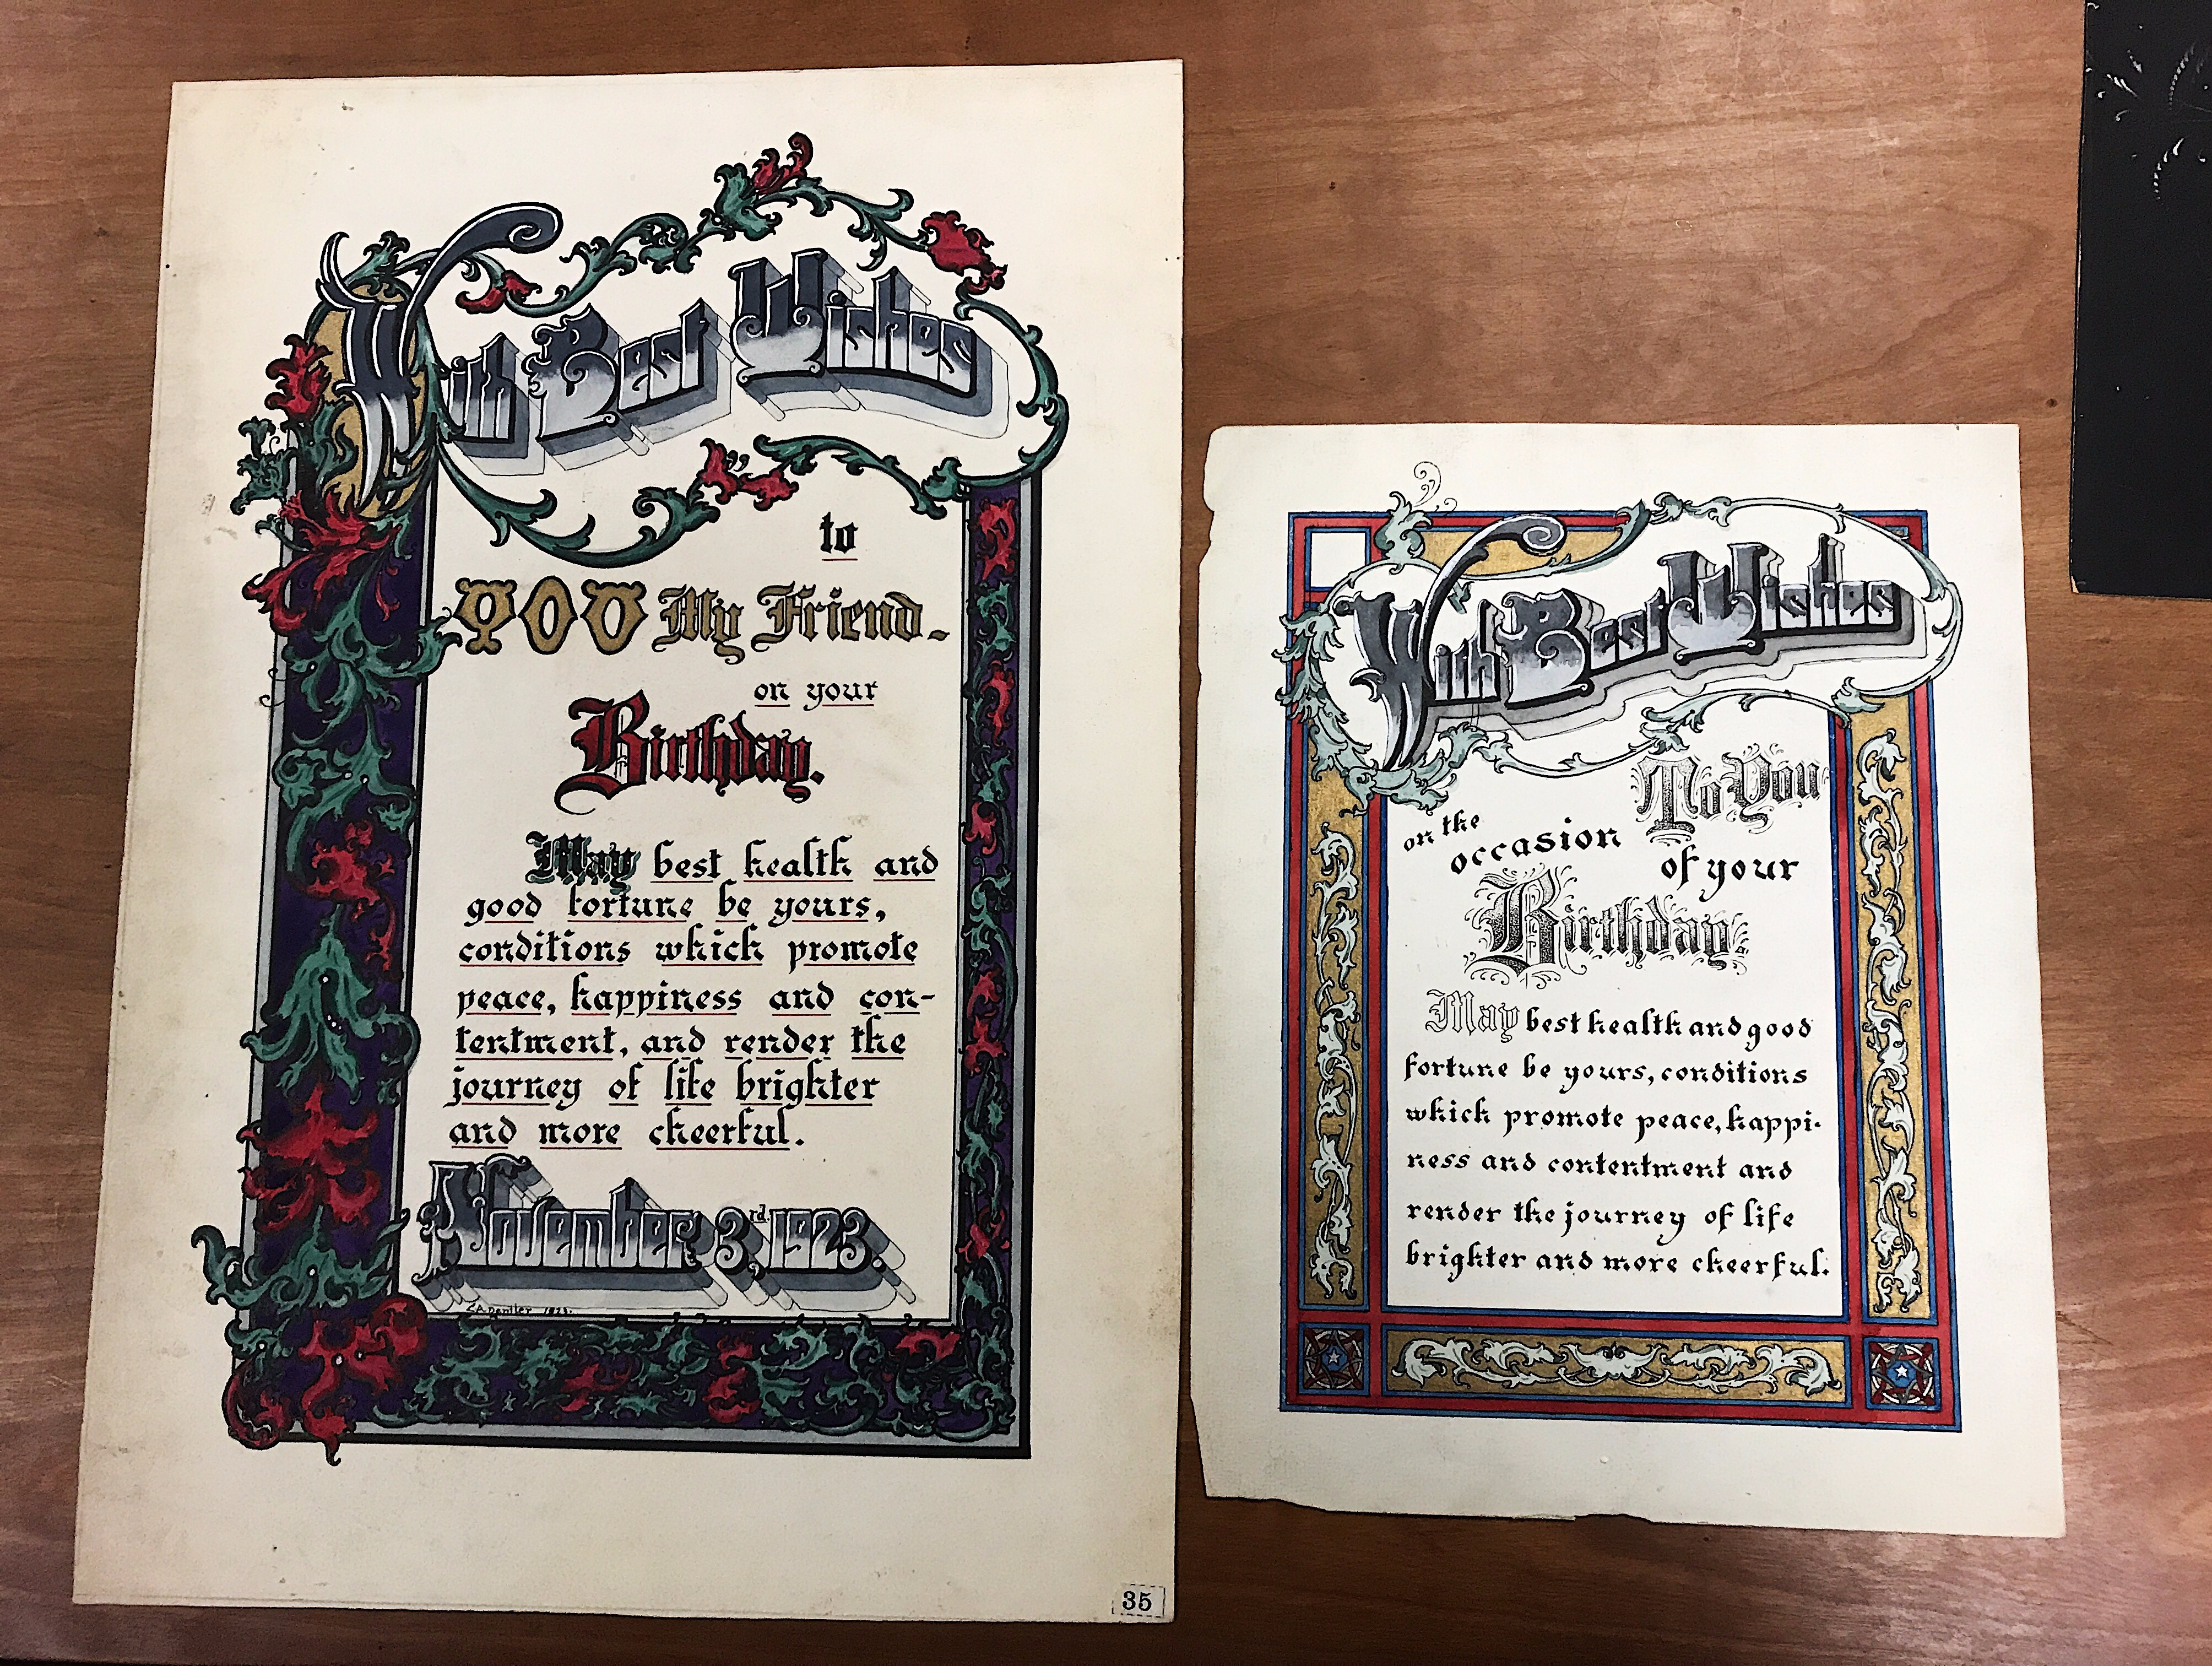 With Best Wishes
to
YOU My Friend.
on your
Birthday.
May best health and
good fortune be yours,
conditions which promote
peace, happiness and con-
tentment, and render the
journey of life brighter
and more cheerful.
November 3rd, 1923.
35
With Best Wishes
To You
on the
occasion
of your
Birthday.
May best health and good
fortune be yours, conditions
which promote peace, happi-
ness and contentment and
render the journey of life
brighter and more cheerful.